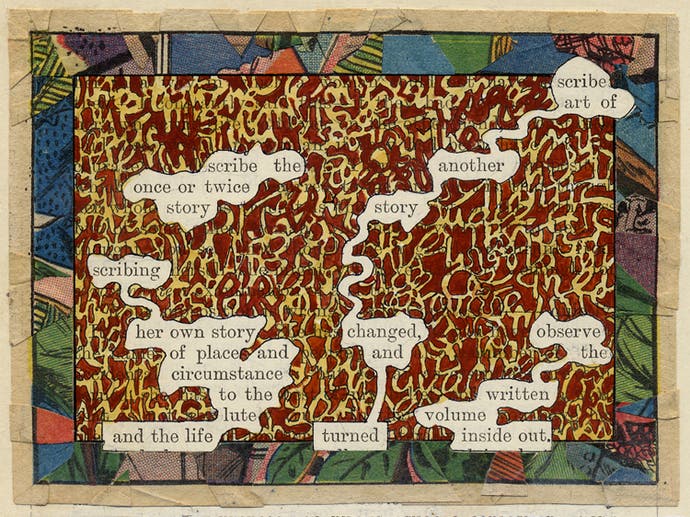 scribe
art of
scribe the
once or twice
story
another
story
scribing
her own story
of places and
circumstance
to the
lute
and the life
changed,
and
turned
observe
the
written
volume
inside out,